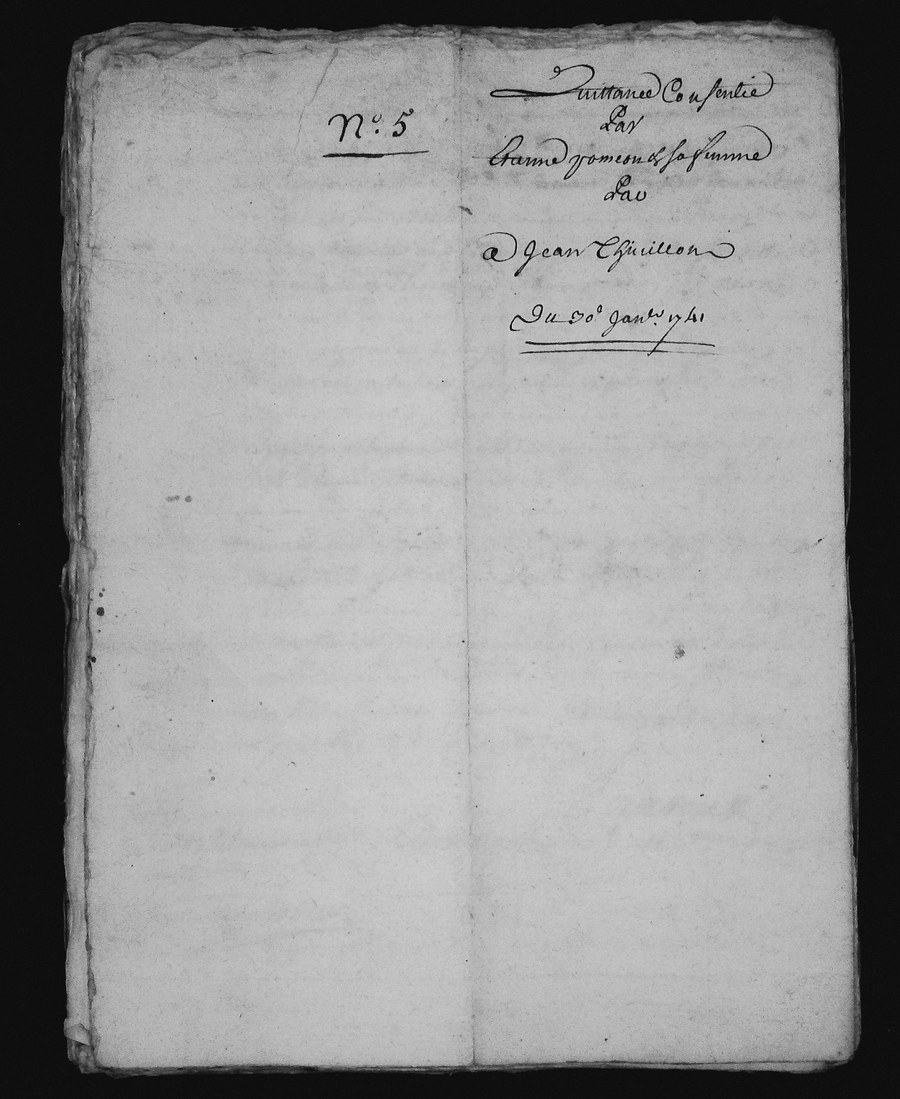 N.º 5
Quittance Consentie
Par
Etienne romeou & sa femme
Par
a Jean Thuillon
Du 30e Janer. 1741